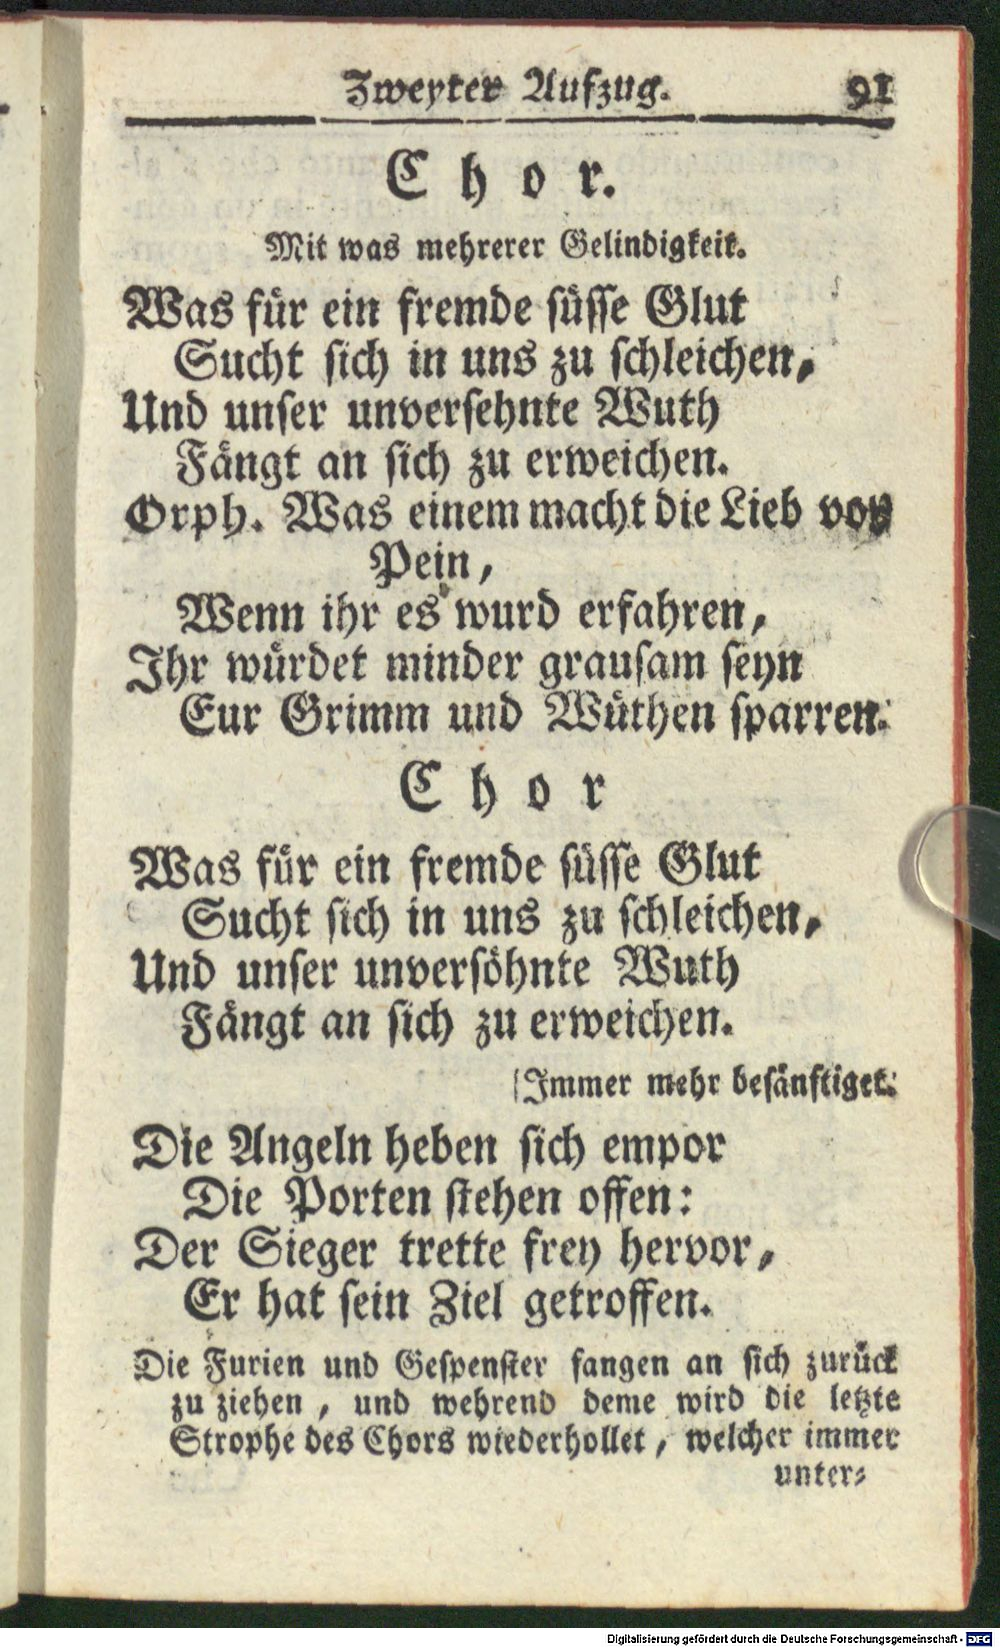 Zweyter Aufzug. 91
Chor.
Mit was mehrerer Gelindigkeit.
Was für ein fremde süsse Glut
Sucht sich in uns zu schleichen,
Und unser unversehnte Wuth
Fängt an sich zu erweichen.
Orph. Was einem macht die Lieb vor
Pein,
Wenn ihr es wurd erfahren,
Ihr würdet minder grausam seyn
Eur Grimm und Wüthen sparren.
Chor
Was für ein fremde süsse Glut
Sucht sich in uns zu schleichen,
Und unser unversöhnte Wuth
Fängt an sich zu erweichen.
(Immer mehr besänftiget.
Die Angeln heben sich empor
Die Porten stehen offen:
Der Sieger trette frey hervor,
Er hat sein Ziel getroffen.
Die Furien und Gespenster fangen an sich zurück
zu ziehen, und wehrend deme wird die letzte
Strophe des Chors wiederhollet, welcher immer
unter-
Digitalisierung gefördert durch die Deutsche Forschungsgemeinschaft - DFG